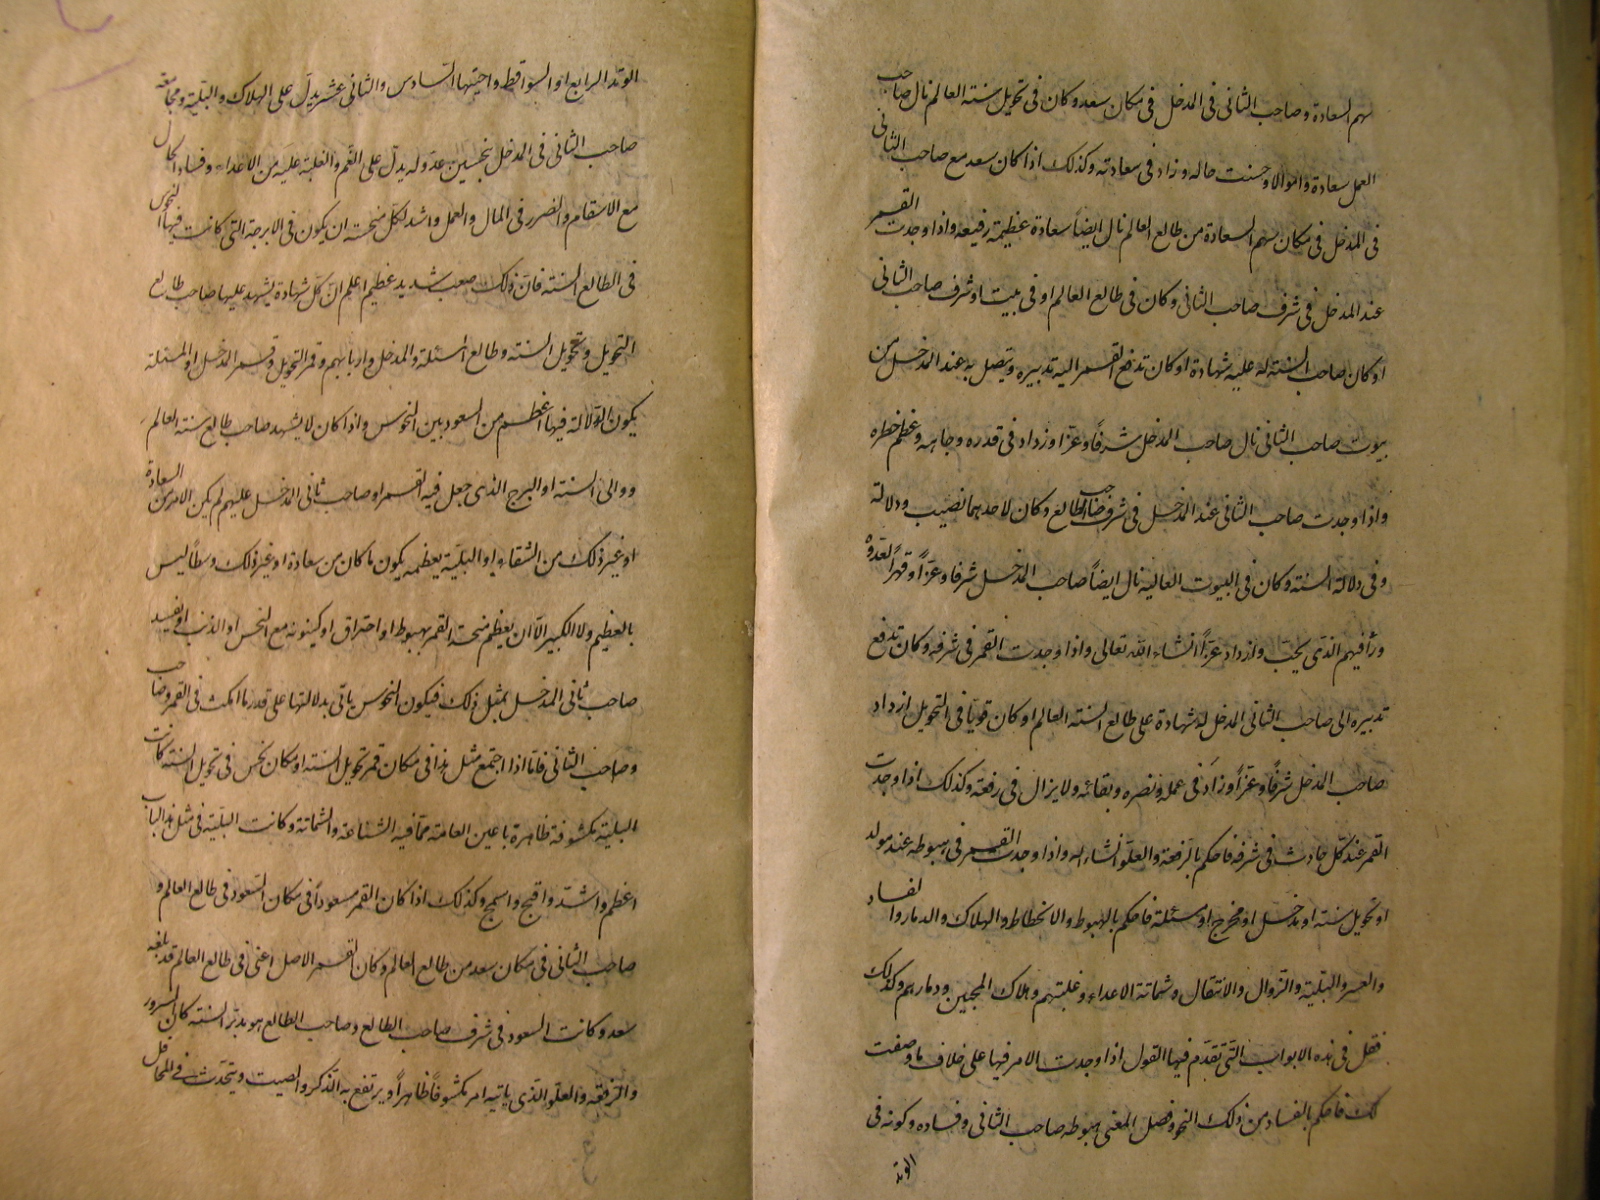 سهم السعادة وصاحب الثاني في المدخل في مكان سعد وكان في تحويل سنة العالم نال صاحب
العمل سعادة واموالا وحسنت حاله وزاد في سعادته وكذلك اذا كان سعد مع صاحب الثاني
في المدخل في مكان سهم السعادة من طالع العالم نال ايضاً سعادة عظيمة رفيعه واذا وجدت القمر
عند المدخل في شرف صاحب الثاني وكان في طالع العالم او في بيت او شرف صاحب الثاني
او كان صاحب السنة له عليه شهادة او كان تدفع القمر اليه تدبيره ويتصل به عند المدخل من
بيوت صاحب الثاني نال صاحب المدخل شرفاً وعزا وزداد في قدره وجاهه وعظم خطره
واذا وجدت صاحب الثاني عند المدخل في شرف صاحب الطالع وكان لاحدهما نصيب ودلالة
وفي دلالة السنة وكان في البيوت العالية نال ايضاً صاحب المدخل شرفا وعزاً وقهراً لعدوه
ورأ فيهم الذي يحب وازداد عزاً انشاء الله تعالى واذا وجدت القمر في شرفه وكان تدفع
تدبيره الى صاحب الثاني المدخل له شهادة على طالع السنة العالم او كان قويا في التحويل ازداد
صاحب المدخل شرفاً وعزاً وزاد في عمله ونصره وبقائه ولا يزال في رفعة وكذلك اذا وجدت
القمر عند كل حادث في شرفه فاحكم بالرفعة والعلو انشاء الله واذا وجدت القمر في هبوطه عند مولد
او تحويل سنة او مدخل او مخرج او مسئلة فاحكم بالهبوط والانحطاط والهلاك والدمار والفساد
والعسر والبلية والزوال والانتقال وشماتة الاعداء وغلبتهم وهلاك المحبين ودمارهم وكذلك
فقل في هذه الابواب التي تقدم فيها القول اذا وجدت الامر فيها على خلاف ما وصفت
لك فاحكم بالفساد من ذلك النحو فصل المعنى هبوطه صاحب الثاني وفساده وكونه في
الوتد
الوتد الرابع او السواقط واخبثها السادس والثاني عشر يدل على الهلاك والبلية ومجامعة
صاحب الثاني في المدخل بنحسين عدو له يدل على الغم والغلبة عليه من الاعداء وفساد الحال
مع الاسقام والضرر في المال والعمل واشد لكل منحسة ان يكون في الابرجة التي كانت فيها النحوس
في الطالع السنة فان ذلك صعب شديد عظيم اعلم ان كل شهادة يشهد عليها صاحب طالع
التحويل وتحويل السنة وطالع المسئلة والمدخل واربابهم وقمر التحويل وقمر المدخل او المسئلة
يكون الدلالة فيها اعظم من السعود بين النحوس واذا كان لا يشهد صاحب طالع سنة العالم
ووالى السنة او البرج الذي جعل فيه القمر او صاحب ثاني المدخل عليهم لم يكن الامر من السعادة
او غير ذلك من الشقاء او البلية يعظمه يكون ما كان من سعادة او غير ذلك وسطاً ليس
بالعظيم ولا الكبير الا ان يعظم منحسة القمر بهبوط او احتراق او كينونة مع النحس او الذنب او يفسد
صاحب ثاني المدخل بمثل ذلك فيكون النحوس ياتي بدلالتها على قدر ما امكث في القمر وصاحب
وصاحب الثاني فاما اذا اجتمع مثل هذا في مكان قمر تحويل السنة او مكان نحس في تحويل السنة كانت
البلية مكشوفة ظاهرة باعين العامة مما فيه الشناعة والشماتة وكانت البلية في مثل هذا الباب
اعظم واشد واقبح واسمج وكذلك اذا كان القمر مسعوداً في مكان السعود في طالع العالم و
صاحب الثاني في مكان سعد من طالع العالم وكان القمر الاصل اعني في طالع العالم قد بلغه
سعد وكانت السعود في شرف صاحب الطالع وصاحب الطالع هو مدبر السنة كان السرور
والرفعة والعلو الذي ياتيه امر مكشوفاً ظاهراً ويرتفع به الذكر والصيت ويتحدث في المحافل